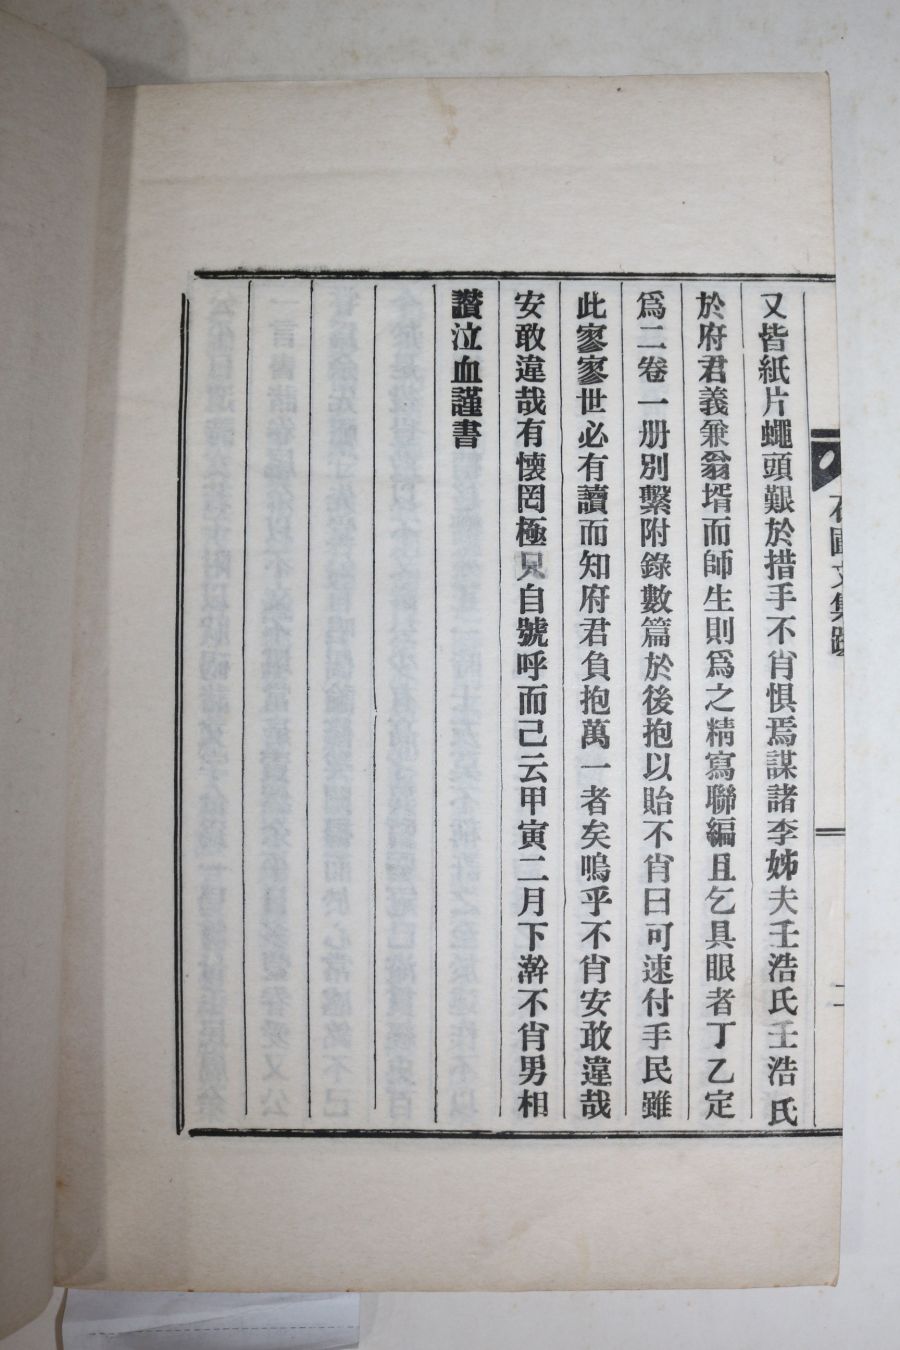 文集跋
二
又皆紙片蠅頭艱於措手不肖惧焉謀諸李姊夫壬浩氏壬浩氏
於府君義兼翁壻而師生則爲之精寫聯編且乞具眼者丁乙定
爲二卷一册別繫附錄數篇於後抱以貽不肖曰可速付手民雖
此寥寥世必有讀而知府君負抱萬一者矣嗚乎不肖安敢違哉
安敢違哉有懷罔極只自號呼而已云甲寅二月下澣不肖男相
讚泣血謹書